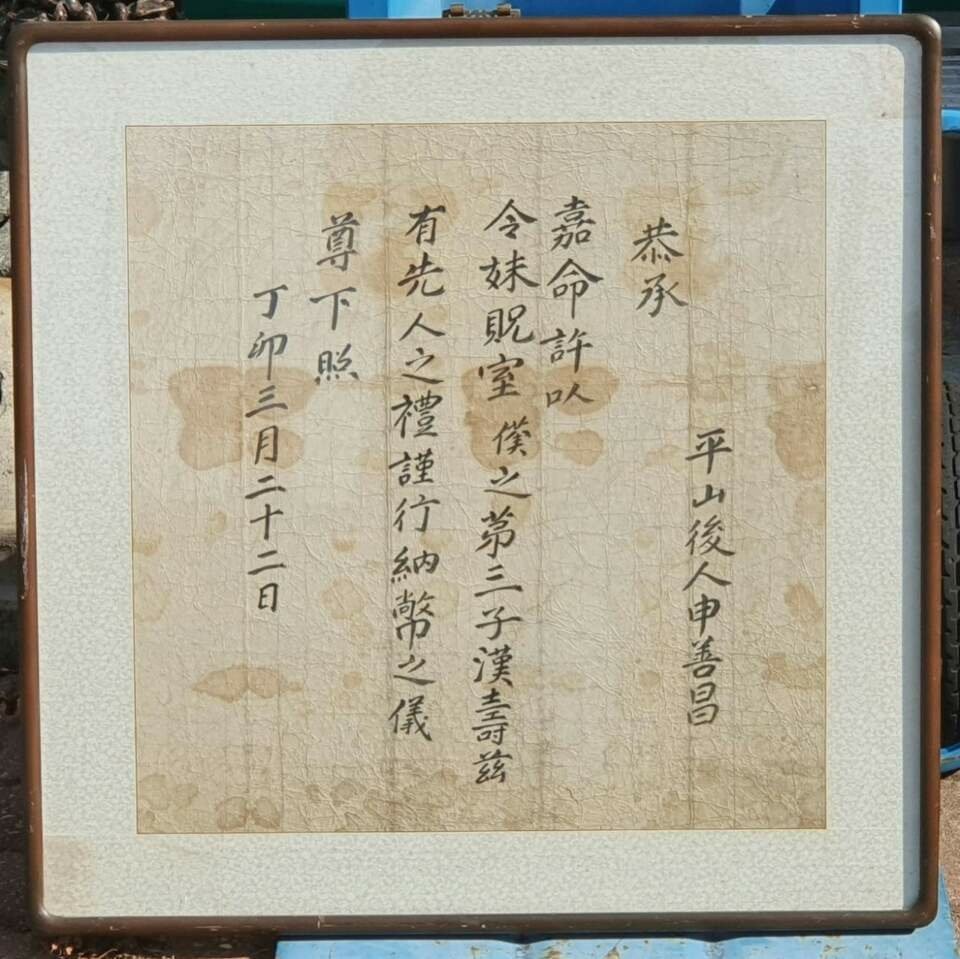 平山後人申善昌
恭承
嘉命許以
令妹貺室僕之第三子漢壽茲
有先人之禮謹行納幣之儀
尊下照
丁卯三月二十二日